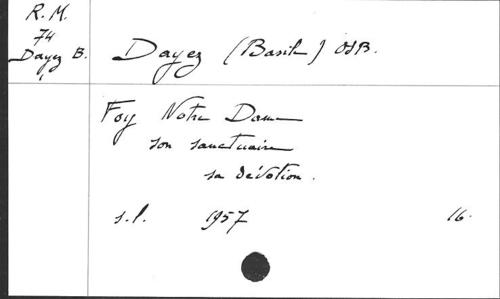 R.M.
74
Dayez B.
Dayez (Basile) OSB.
Foy Notre Dame
son sanctuaire
sa dévotion.
s.l. 1957 16.